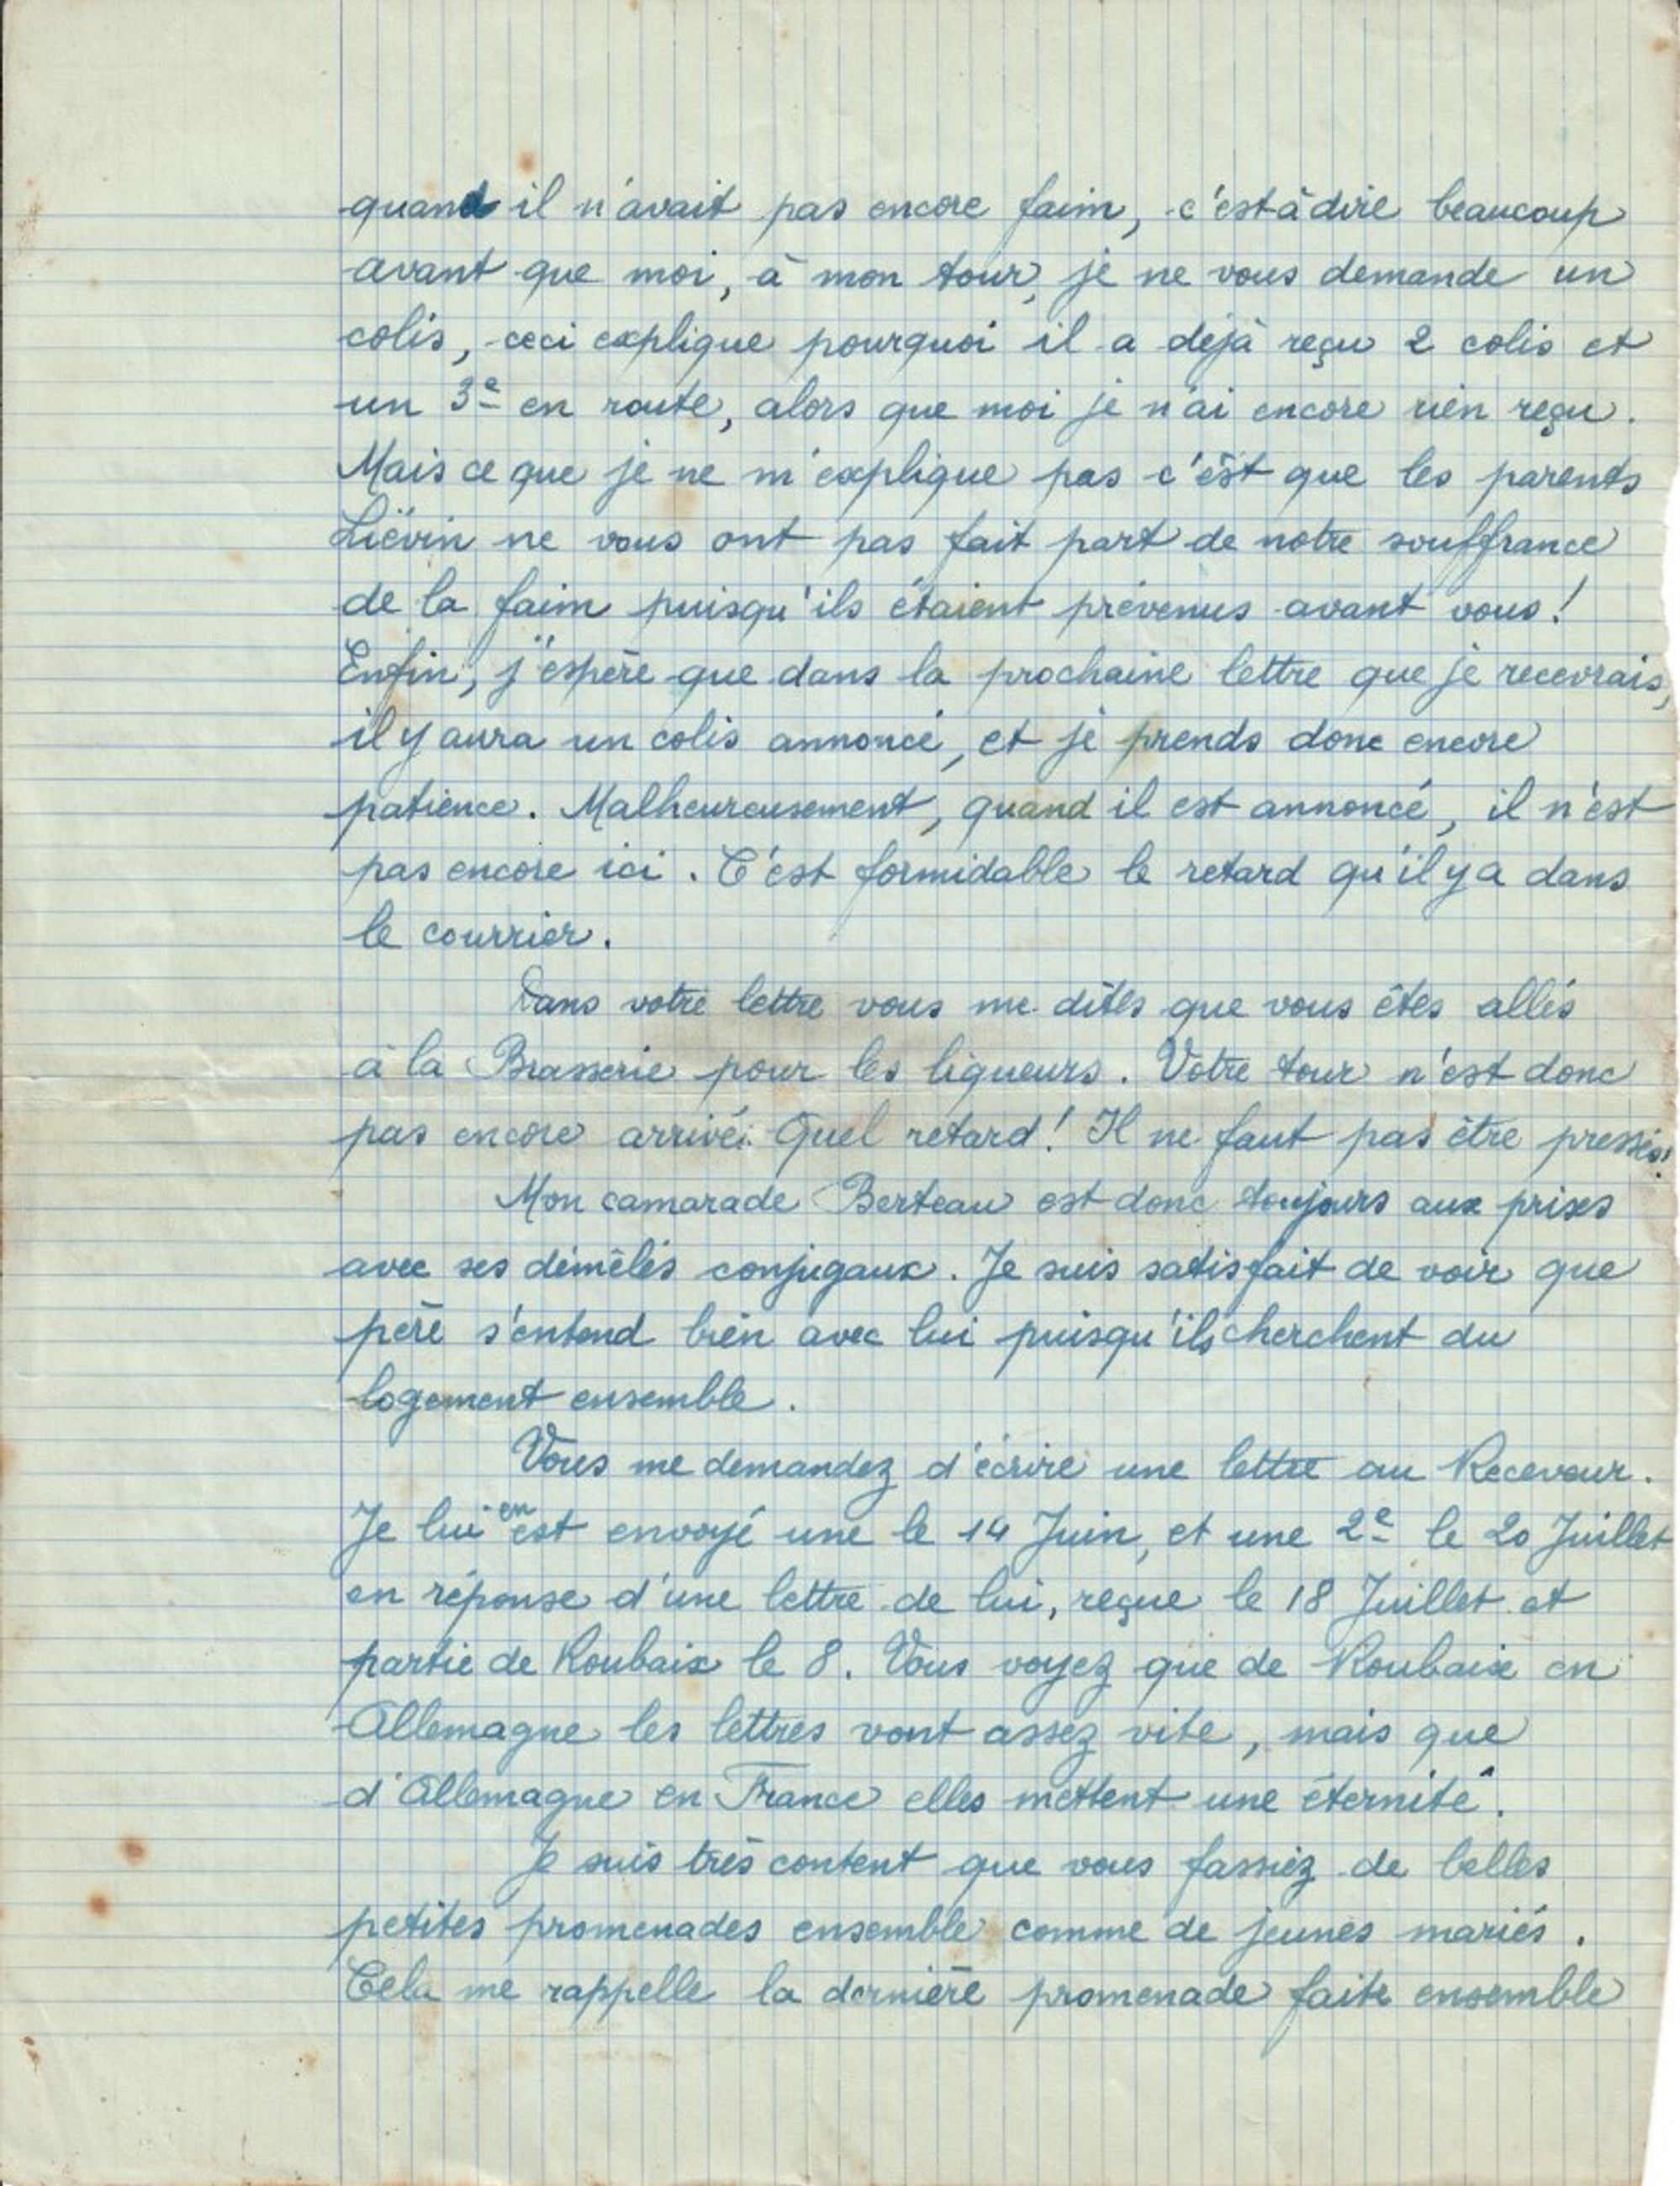 quand il n'avait pas encore faim, c'est-à dire beaucoup
avant que moi, à mon tour, je ne vous demande un
colis, ceci explique pourquoi il a déjà reçu 2 colis et
un 3e en route, alors que moi je n'ai encore rien reçu.
Mais ce que je ne m'explique pas c'est que les parents
Liévin ne vous ont pas fait part de notre souffrance
de la faim puisqu'ils étaient prévenus avant vous!
Enfin, j'espère que dans la prochaine lettre que je recevrais,
il y aura un colis annoncé, et je prends donc encore
patience. Malheureusement, quand il est annoncé, il n'est
pas encore ici. C'est formidable le retard qu'il y a dans
le courrier.
Dans votre lettre vous me dîtes que vous êtes allés
à la Brasserie pour les liqueurs. Votre tour n'est donc
pas encore arrivé. Quel retard! Il ne faut pas être pressés!
Mon camarade Berteau est donc toujours aux prises
avec ses démêlés conjugaux. Je suis satisfait de voir que
père s'entend bien avec lui puisqu'ils cherchent du
logement ensemble.
Vous me demandez d'écrire une lettre au Receveur.
Je lui en est envoyé une le 14 Juin, et une 2e le 20 Juillet
en réponse d'une lettre de lui, reçue le 18 Juillet et
partie de Roubaix le 8. Vous voyez que de Roubaix en
Allemagne les lettres vont assez vite, mais que
d'Allemagne en France elles mettent une éternité.
Je suis très content que vous fassiez de belles
petites promenades ensemble comme de jeunes mariés.
Cela me rappelle la dernière promenade faite ensemble